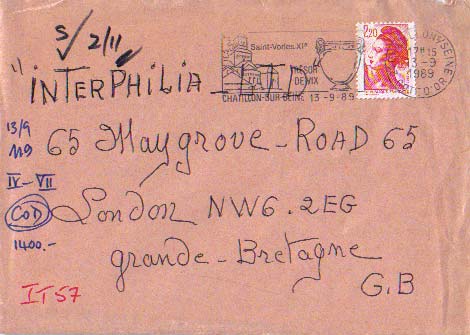 S/ 2/11
Saint-Vorles.XIᵉ
TRÉSOR
DE VIX
CHATILLON-SUR-SEINE 13-9-89
2,20
SEINE
17H15
13-9
1989
CÔTE-D'OR
"INTERPHILIA LTD
13/9
119
IV-VII
COD
1400.-
IT57
65 Maygrove-ROAD 65
London NW6.2EG
grande-Bretagne
G.B